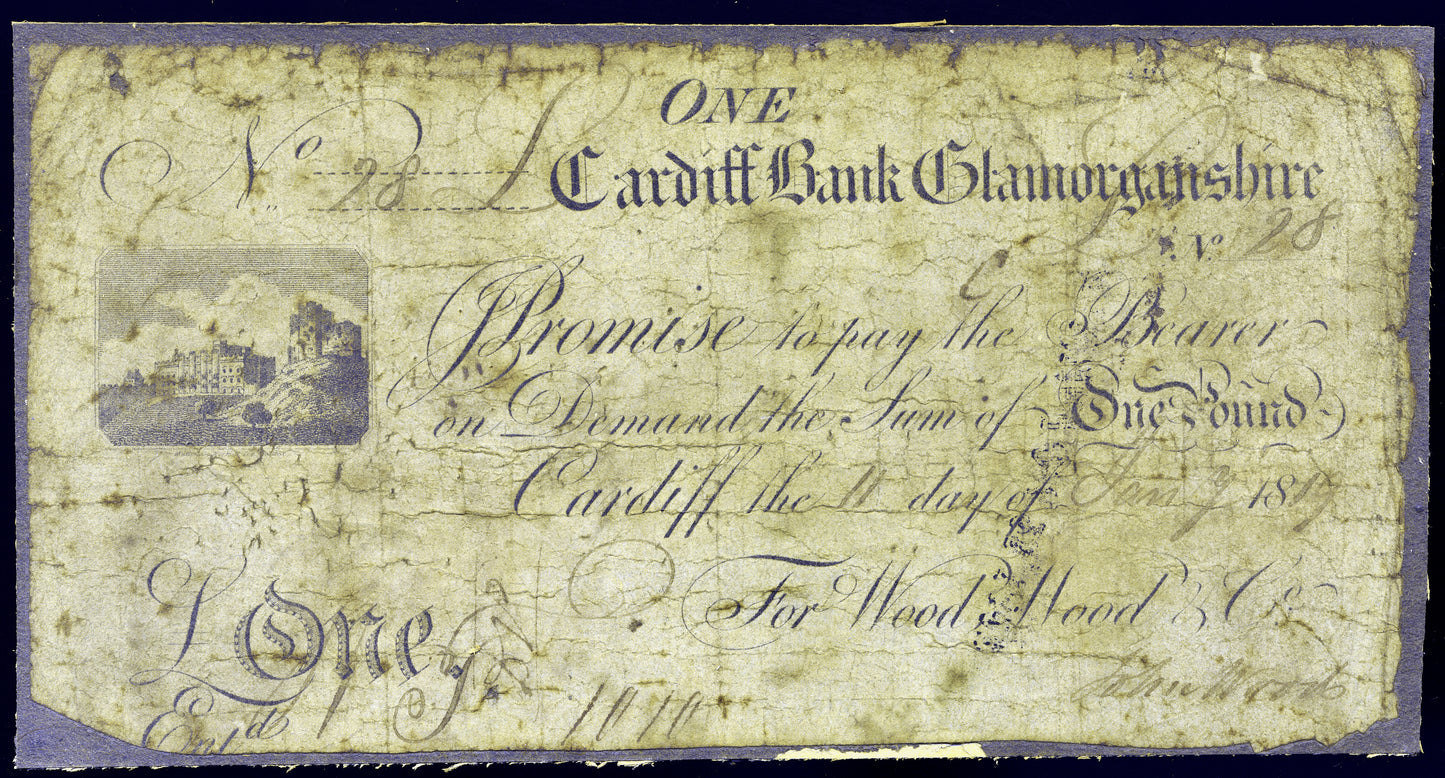 ONE
No 28 Cardiff Bank Glamorganshire
No 28
I Promise to pay the Bearer
on Demand the Sum of One Pound
Cardiff the 11 day of Jany 1819
For Wood Wood & Co
£ One
John Wood
Entd